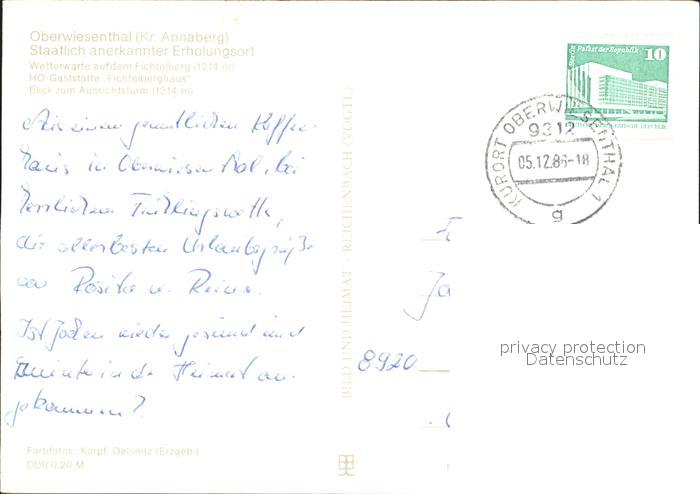 Oberwiesenthal (Kr. Annaberg)
Staatlich anerkannter Erholungsort
Wetterwarte auf dem Fichtelberg (1214 m)
HO-Gaststätte „Fichtelberghaus"
Blick zum Aussichtsturm (1214 m)
Aus einem gemütlichen Kaffee-
haus in Oberwiesenthal, bei
herrlichem Frühlingswetter,
die allerbesten Urlaubsgrüße
von Rosita u. Reiner.
Ist Jochen wieder gesund und
munter in der Heimat an-
gekommen?
Farbfotos: Karpf, Oelsnitz (Erzgeb.)
DDR 0,20 M
BILD UND HEIMAT · REICHENBACH (VOGTL)
Berlin Palast der Republik 10
KURORT OBERWIESENTHAL 1
9312
05.12.86-18
g
8920
privacy protection
Datenschutz